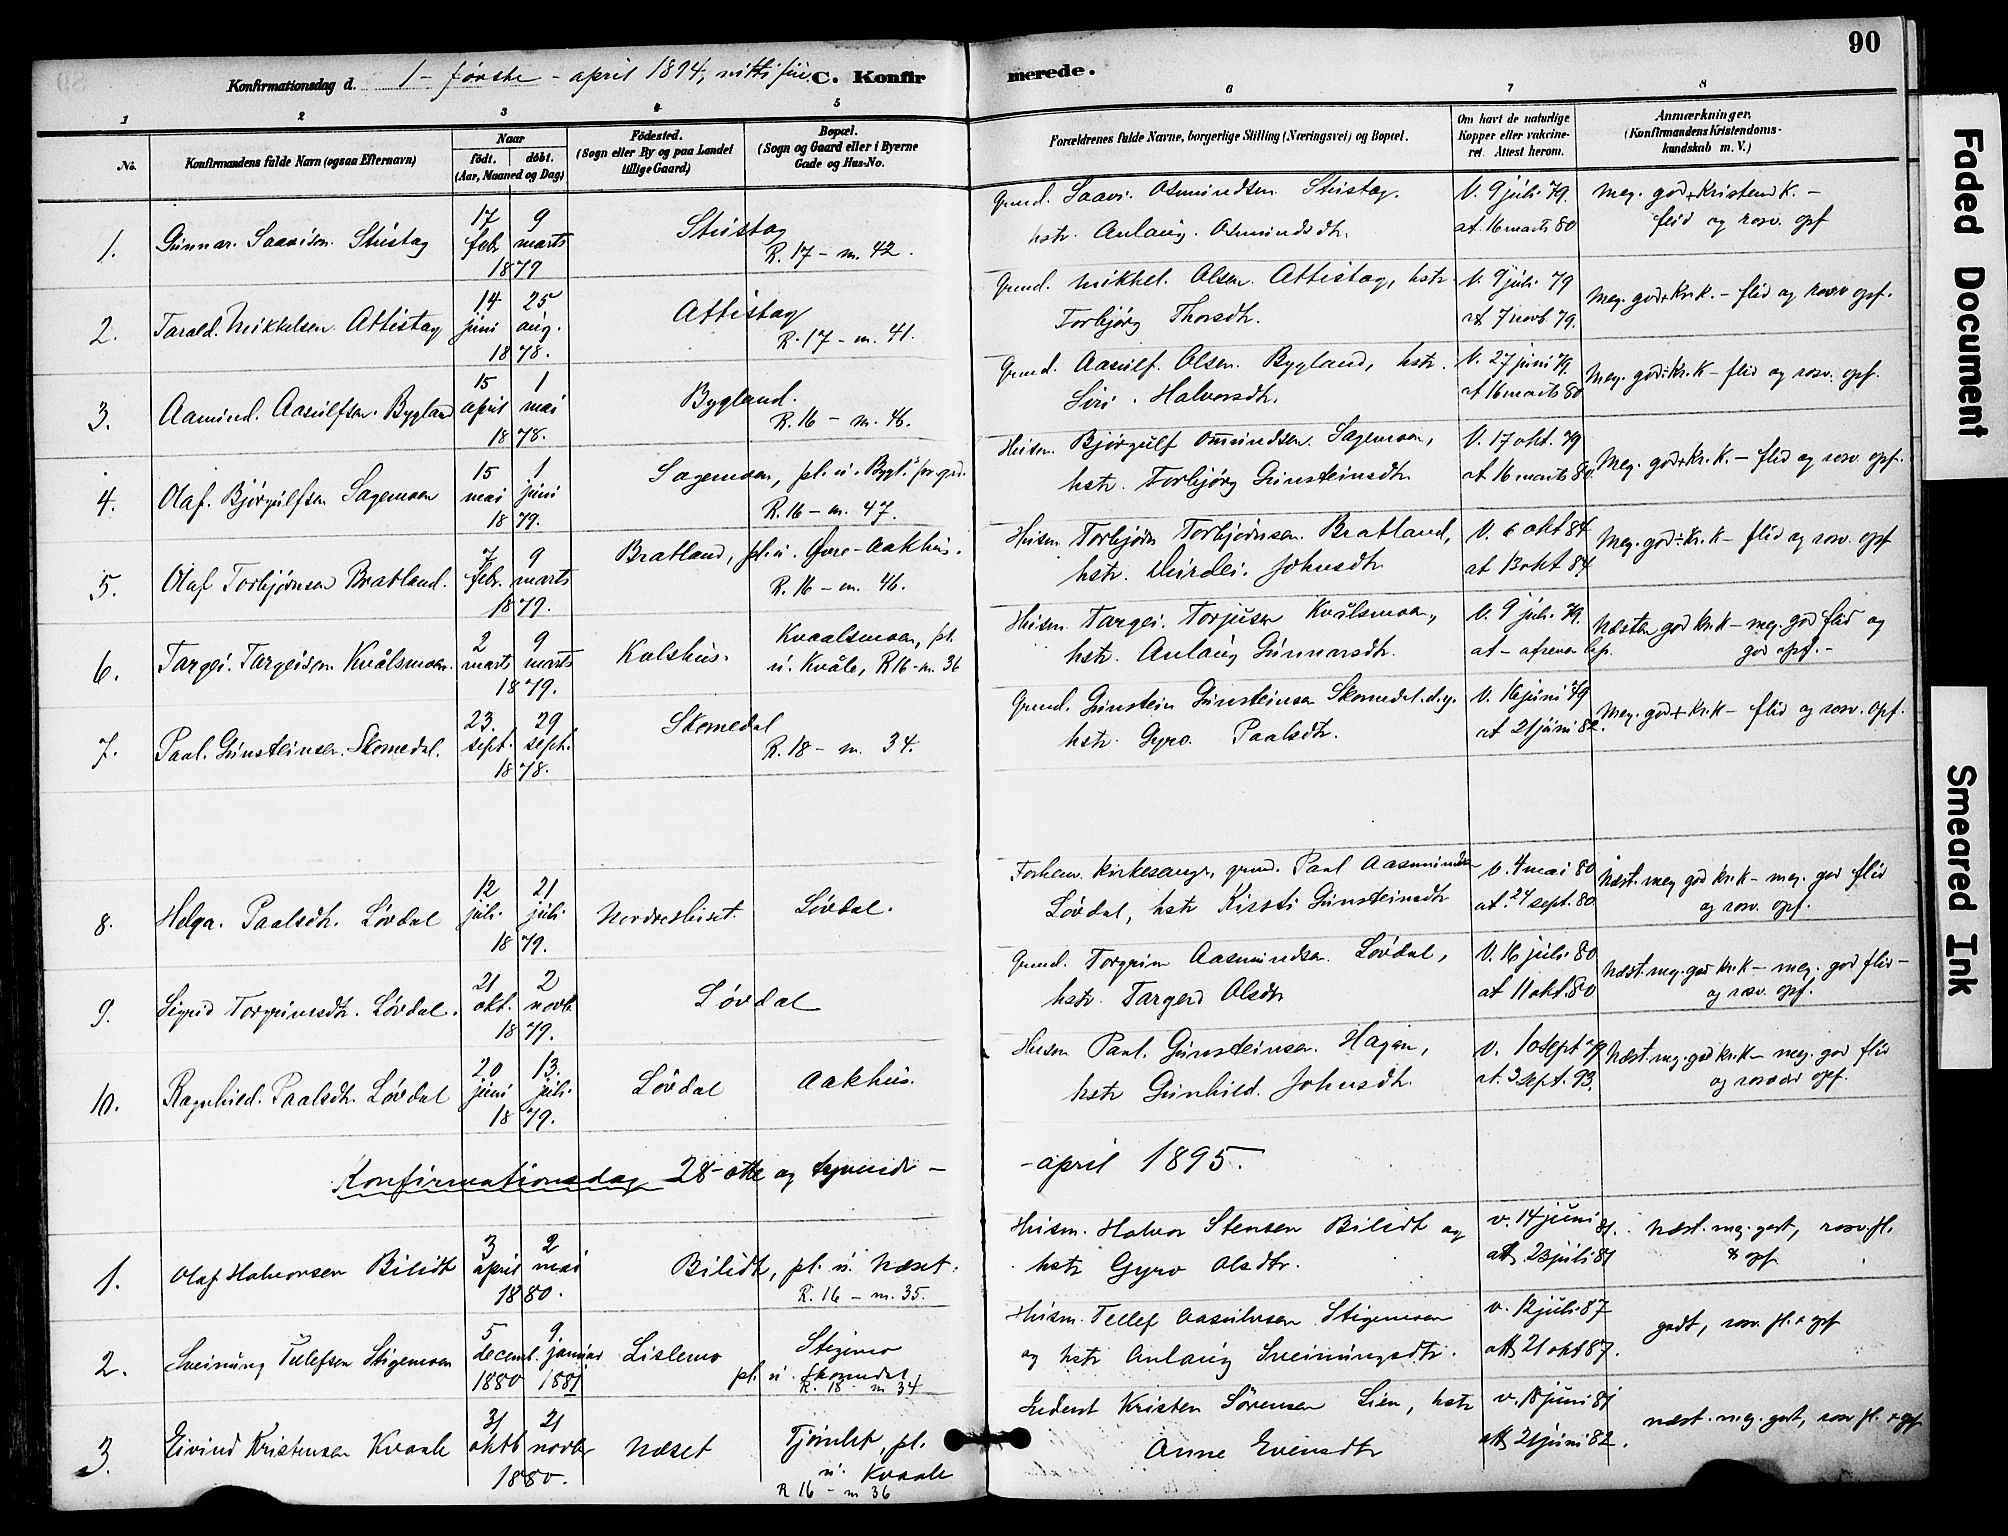 90
Konfirmationsdag d. 1 – første – april 1894, nitti fire
C. Konfir
merede.
1 2 3 4 5 6 7 8
No.
Konfirmandens fulde Navn (ogsaa Efternavn)
Naar
födt. döbt.
(Aar, Maaned og Dag)
Födested.
(Sogn eller By og paa Landet
tillige Gaard)
Bopæl.
(Sogn og Gaard eller i Byerne
Gade og Hus-No.
Forældrenes fulde Navne, borgerlige Stilling (Næringsvei) og Bopæl.
Om havt de naturlige
Kopper eller vakcine-
ret. Attest herom.
Anmærkninger.
(Konfirmandens Kristendoms-
kundskab m. V.)
1. Gunnar Saavisen
17 febr 1879
9 marts
R. 17 – m. 42.
Grund. Saavi Osmundsen
hstr. Anlaug Osmundsdtr.
V. 9 juli 79.
at. 16 marts 80
Meg. god + Kristend k. –
flid og rosv. opf
2. Tarald Mikkelsen Attistog
14 juni 1878.
25 aug.
Attistog
R. 17 – m. 41.
Grund. Mikkel Olsen Attistog, hstr
Torbjörg Thorsdtr.
V. 9 juli 79
at 7 novb 79.
Meg. god + kr. k. – flid og rosv opf.
3. Aamund Aasulfsen Bygland
15 april 1878.
1 mai
Bygland.
R. 16 – m. 46.
Grund. Aasulf Olsen Bygland, hstr.
Siri Halvorsdtr.
V. 27 juni 79.
at 16 marts 80
Meg. god + kr. k – flid og rosv. opf.
4. Olaf Björgulfsen Sagemoen
15 mai 1879.
1 juni
Sagemoen, pl. u. Bygl.
R. 16 – m. 47.
Husm. Björgulf Omundsen Sagemoen,
hstr. Torbjörg Gunsteinsdtr
V. 17 okt. 79
at 16 marts 80.
Meg. god + kr. k. – flid og rosv. opf.
5. Olaf Torbjörnsen Bratland.
7 febr. 1879.
9 marts
Bratland, pl. u. Øvre-Aakhus.
R. 16 – m. 46.
Husm Torbjörn Torbjörnsen Bratland,
hstr. Johnsdtr
V. 6 okt 84.
at 13 okt 84.
Meg. god + kr. k – flid og rosv. opf
6. Targei Targeisen Kvålsmoen.
2 marts 1879.
9 marts
Kolshus.
Kvaalsmoen, pl.
u. Kvåle, R 16 – m. 36
Husm. Targei Torjusen Kvålsmoen,
hstr. Anlaug Gunnarsdtr.
V. 9 juli 79.
at –
Næsten god kr. k – meg. god flid og
god opf. –
7. Paal Gunsteinsen Skomedal.
23. sept. 1878.
29 sept.
Skomedal
R. 18 – m. 34.
Grund. Gunstein Gunsteinsen Skomedal d.y.
hstr. Gyro Paalsdtr.
V. 16 juni 79
at 21 juni 82.
Meg. god + kr. k – flid og rosv. opf.
8. Helga Paalsdtr. Lövdal
12 juli. 1879.
21 juli
Nordreshuset.
Lövdal.
Forhenv. kirkesanger, grund. Paal Aasmundsen
Lövdal, hstr Kirsti Gunsteinsdtr
v. 4 mai 80
at. 24 sept. 80
Næst. meg god kr. k – meg. god flid
og rosv. opf.
9. Sigrid Torgrimsdtr. Lövdal.
21 okt. 1879.
2 novb.
Lövdal
Grund. Torgrim Aasmundsen Lövdal,
hstr. Targerd Olsdtr
V. 16 juli 80
at 11 okt. 80
Næst. meg. god kr. k – meg. god flid –
og rosv. opf.
10. Ragnhild Paalsdtr. Lövdal
20 juni 1879.
13. juli.
Lövdal
Aakhus.
Husm Paal Gunsteinsen Hagen,
hstr Gunhild Johnsdtr.
V. 10 sept
at. 3 sept. 93.
Næst. meg. god kr. k – meg. god flid
og opf.
Konfirmationsdag 28 – otte og tyvende –
– april 1895.
1. Olaf Halvorsen Bilidt
3 april 1880.
2 mai
Bilidt, pl. u. Næset.
R. 16 – m. 35.
Husm. Halvor Stensen Bilidt og
hstr Gyro Olsdtr.
v. 14 juni 81.
att 23 juli 81
Næst. meg. godt, rosv. fl.
& opf
2. Sveinung Tellefsen Stigemoen
5 decemb. 1880
9. januar 1881
Lislemo
Stigemo
pl. u. Skomedal
R. 18 – m 34
Husm. Tellef Aasulvsen Stigemoen
og hstr Anlaug Sveinungsdtr.
v. 12 juli 87
att 21 okt 87.
godt, rosv. fl. & opf
3. Eivind Kristensen Kvaale
31 oktb 1880.
21 novbr
Næset
pl.
u. Kvaale
R 16 – m 36
Inderst Kristen Sörensen Lien, hstr
Anne Evensdtr
v. 18 juni 81
att 21 juni 82.
næst. meg. godt, rosv fl. & opf
Faded Document
Smeared Ink